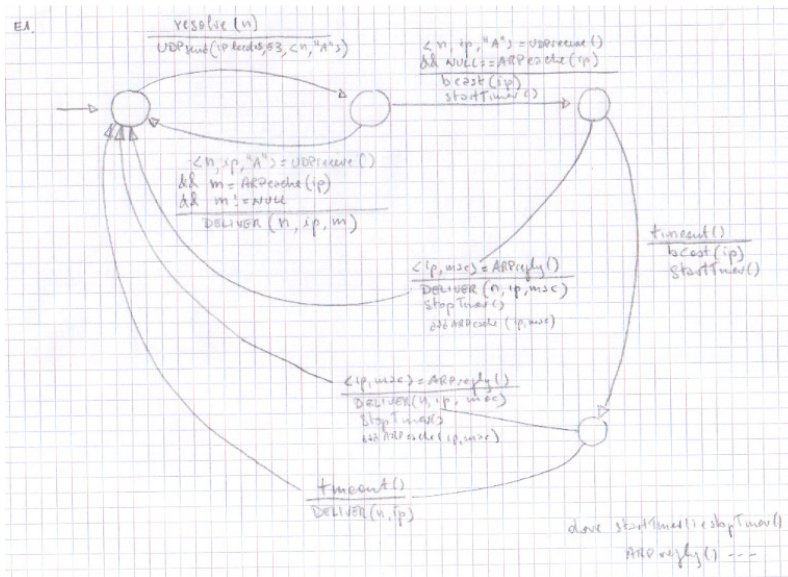 E1.
resolve(n)
UDPsend(ip locdns, 53, <n, "A">)
<n, ip, "A"> = UDPreceive()
&& NULL = ARPcache(ip)
bcast(ip)
startTimer()
<n, ip, "A"> = UDPreceive()
&& m = ARPcache(ip)
&& m != NULL
DELIVER (n, ip, m)
timeout()
bcast(ip)
startTimer()
<ip, mac> = ARPreply()
DELIVER (n, ip, mac)
stopTimer()
addARPcache (ip, mac)
<ip, mac> = ARPreply()
DELIVER(n, ip, mac)
stopTimer()
addARPcache (ip, mac)
timeout()
DELIVER(n, ip)
dove startTimer() e stopTimer()
ARPreply() ---